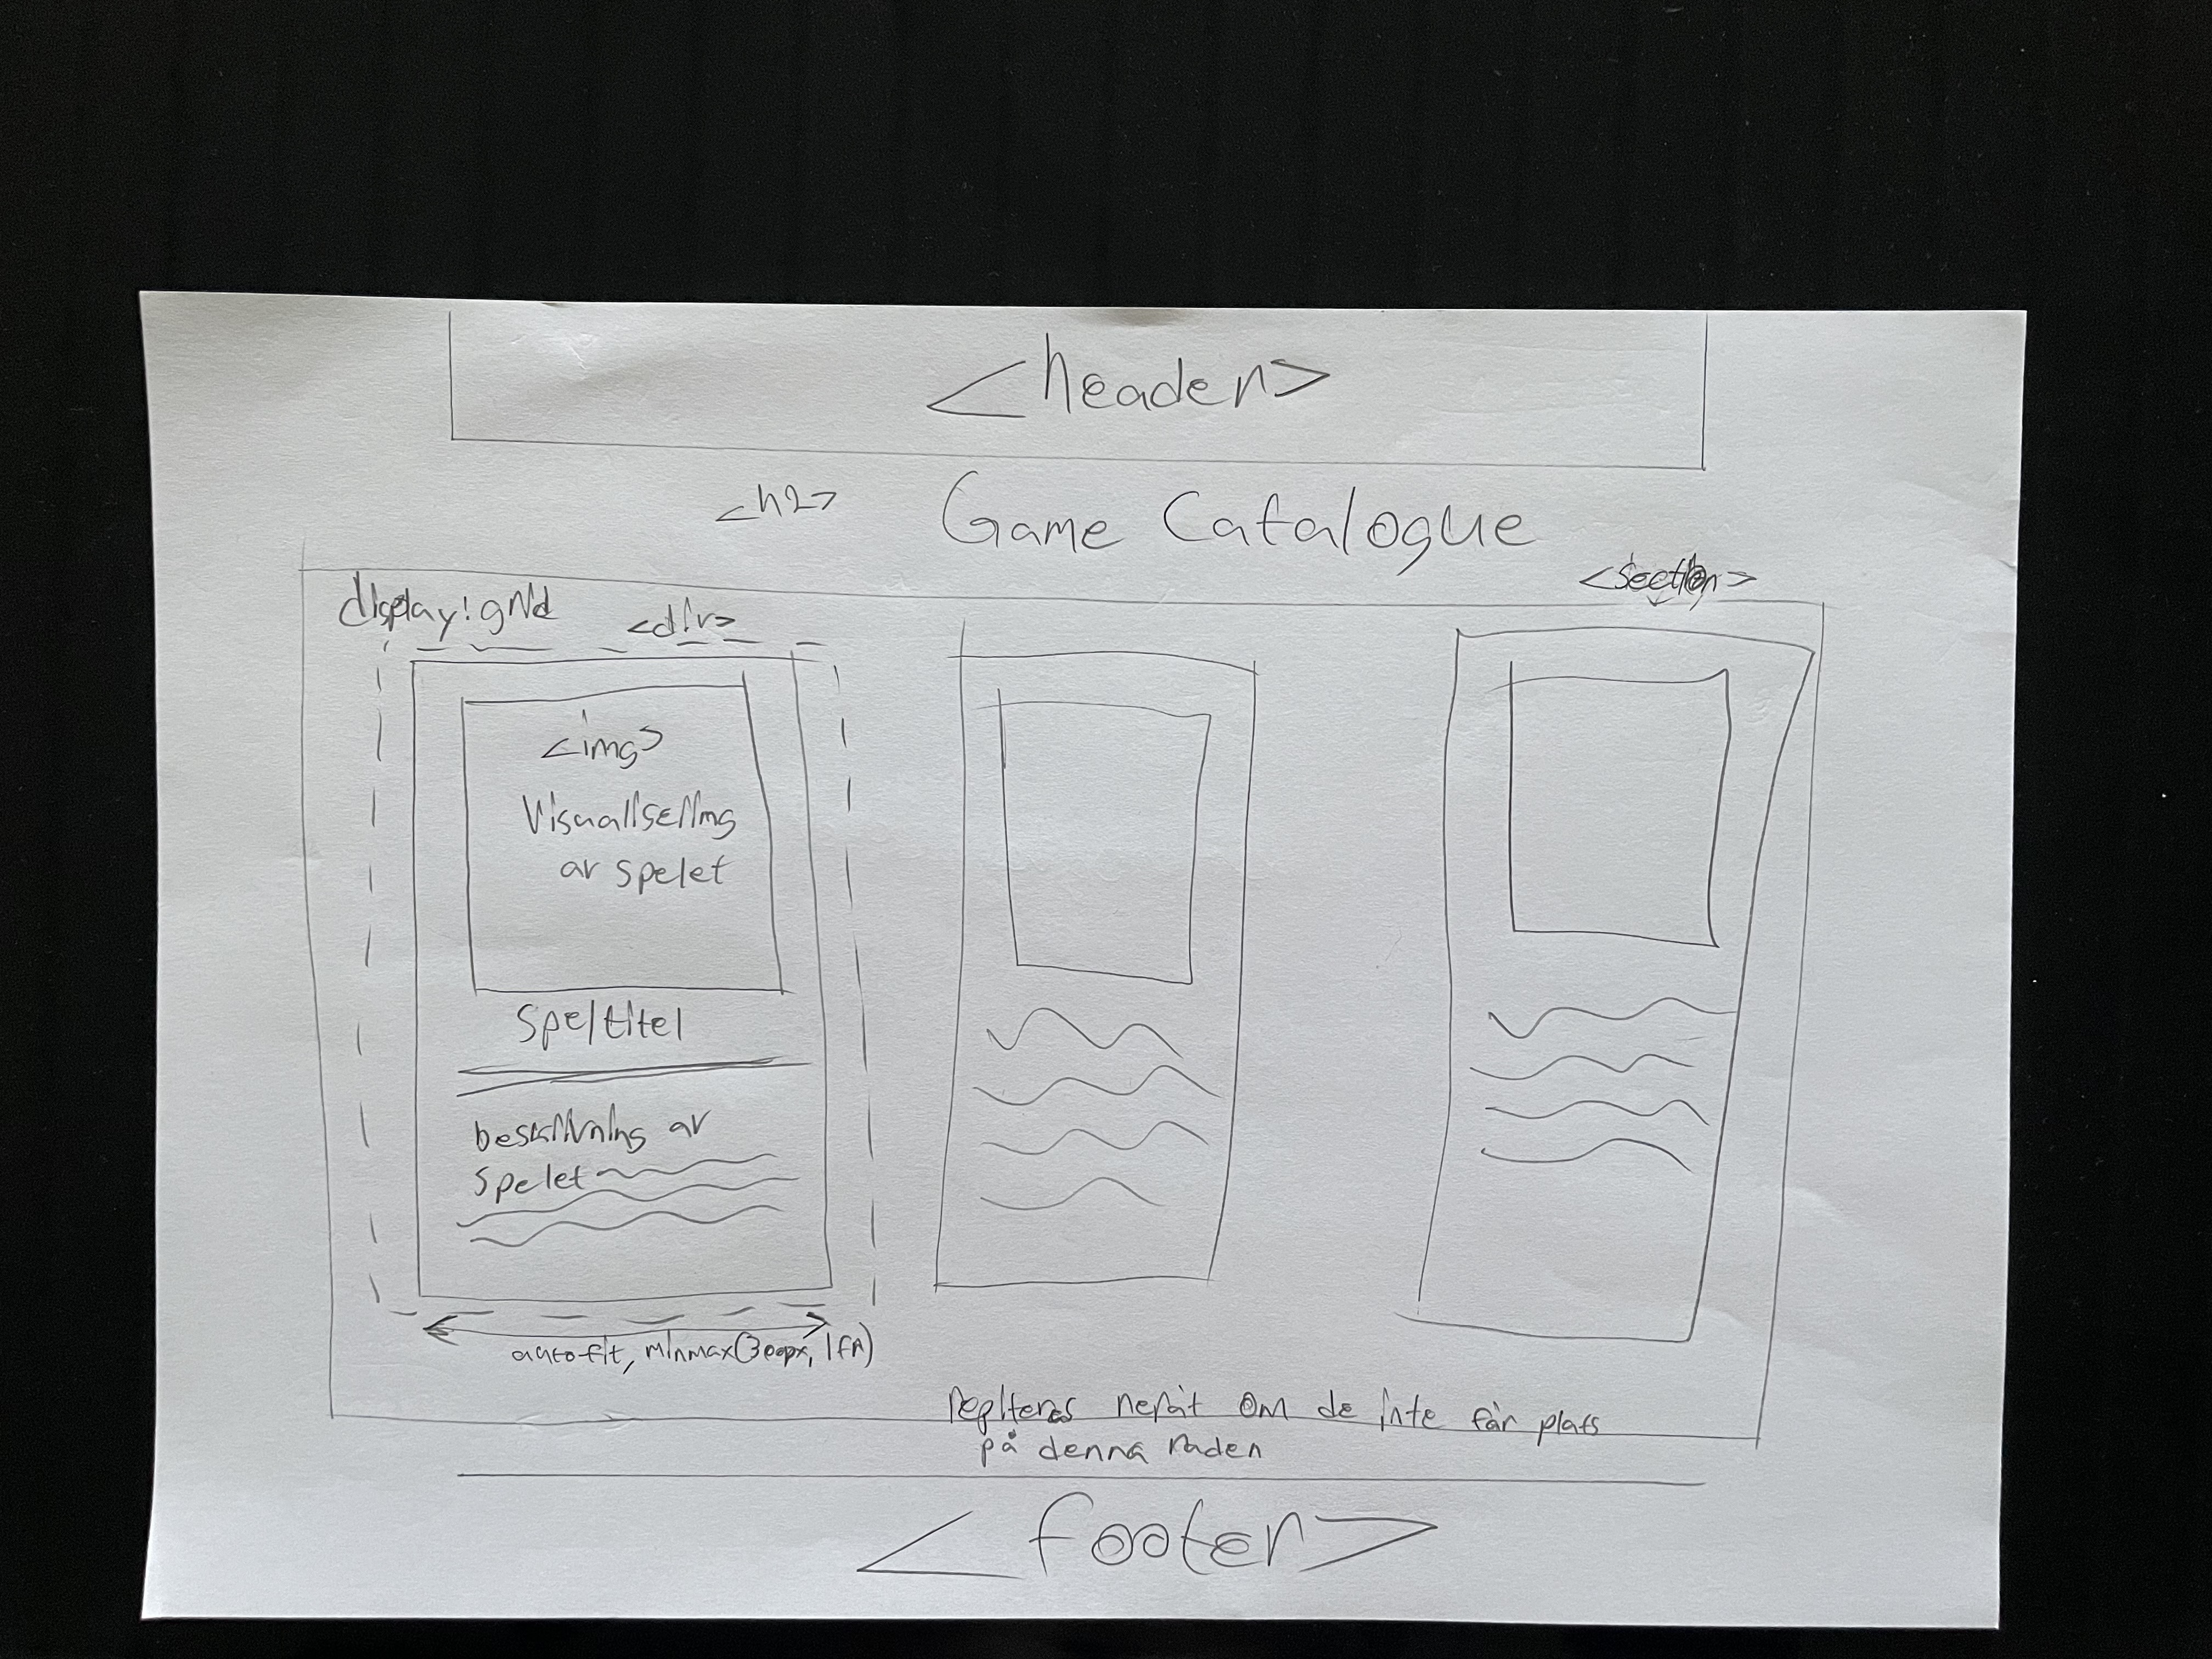 <header>
<h2> Game Catalogue
<section>
display: grid <div>
<img>
Visualisering
av spelet
Speltitel
beskrivning av
spelet
auto-fit, minmax(300px, 1fr)
Repiteras neråt om de inte får plats
på denna raden
<footer>